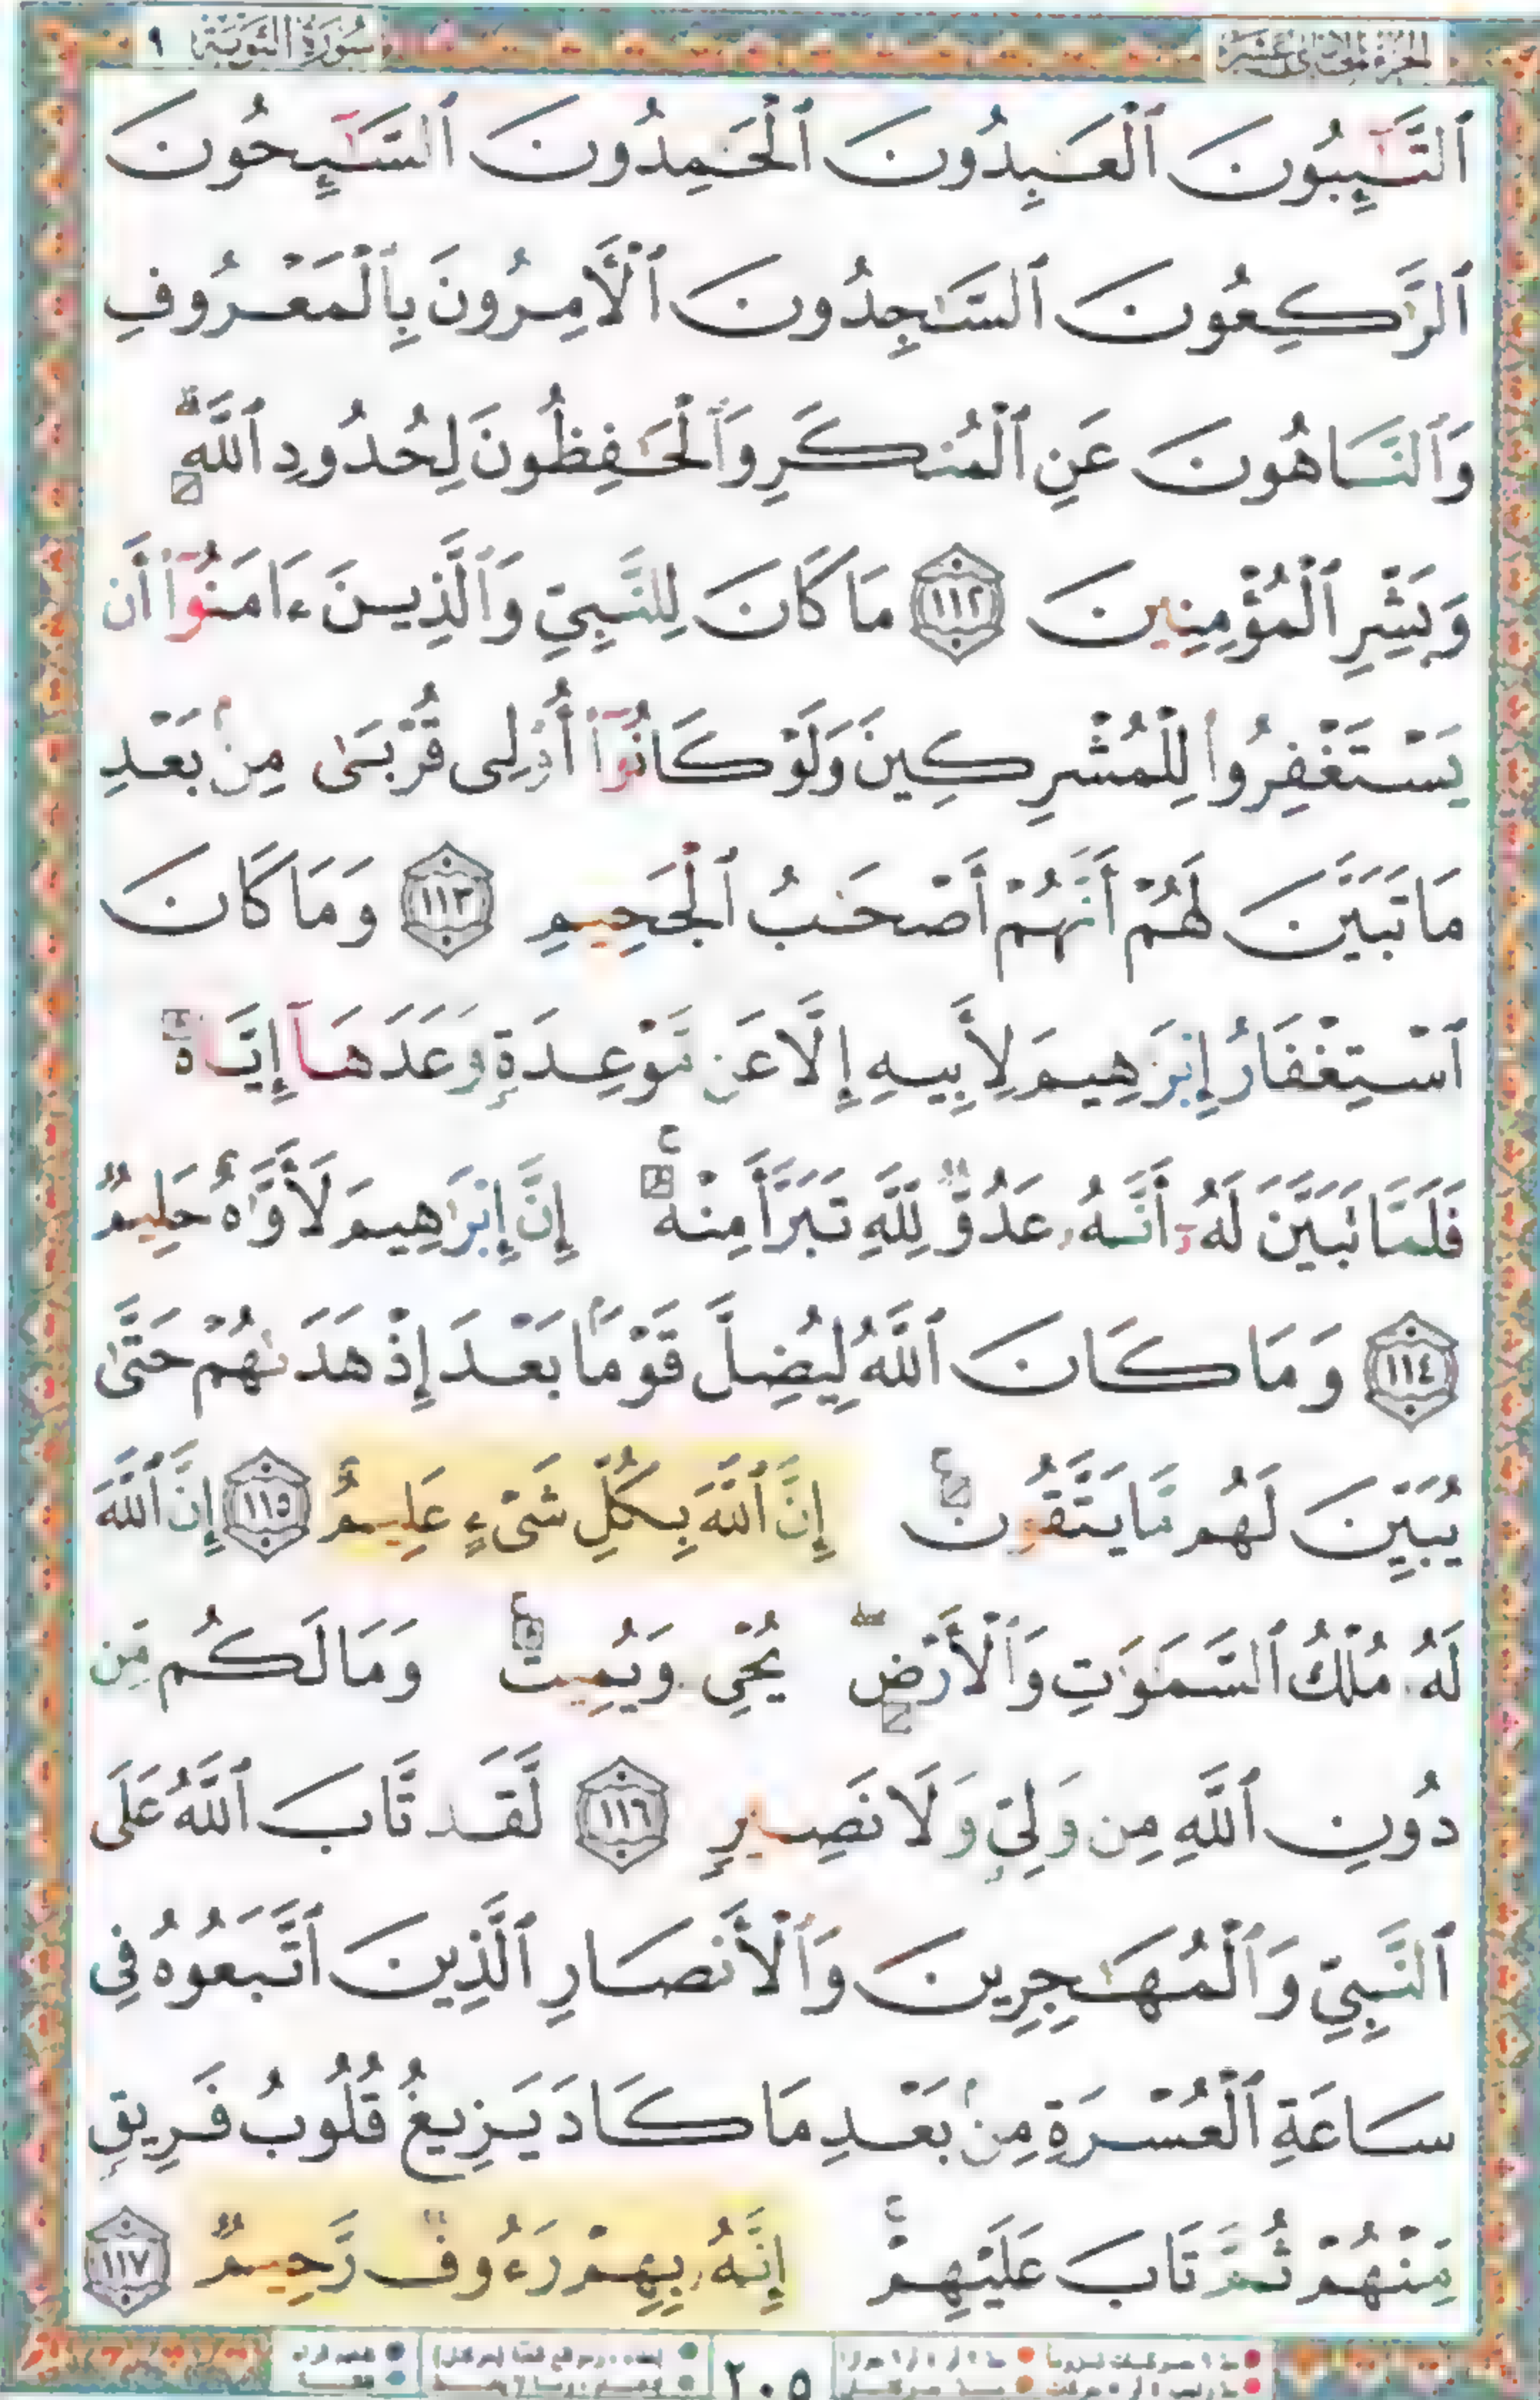 سُورَةُ التَّوْبَةِ ٩
الجُزءُ الحَادِي عَشَرَ
ٱلتَّـٰٓئِبُونَ ٱلْعَـٰبِدُونَ ٱلْحَـٰمِدُونَ ٱلسَّـٰٓئِحُونَ
ٱلرَّٰكِعُونَ ٱلسَّـٰجِدُونَ ٱلْـَٔامِرُونَ بِٱلْمَعْرُوفِ
وَٱلنَّاهُونَ عَنِ ٱلْمُنكَرِ وَٱلْحَـٰفِظُونَ لِحُدُودِ ٱللَّهِ ۗ
وَبَشِّرِ ٱلْمُؤْمِنِينَ ١١٢ مَا كَانَ لِلنَّبِىِّ وَٱلَّذِينَ ءَامَنُوٓا۟ أَن
يَسْتَغْفِرُوا۟ لِلْمُشْرِكِينَ وَلَوْ كَانُوٓا۟ أُو۟لِى قُرْبَىٰ مِنۢ بَعْدِ
مَا تَبَيَّنَ لَهُمْ أَنَّهُمْ أَصْحَـٰبُ ٱلْجَحِيمِ ١١٣ وَمَا كَانَ
ٱسْتِغْفَارُ إِبْرَٰهِيمَ لِأَبِيهِ إِلَّا عَن مَّوْعِدَةٍ وَعَدَهَآ إِيَّاهُ
فَلَمَّا تَبَيَّنَ لَهُۥٓ أَنَّهُۥ عَدُوٌّ لِّلَّهِ تَبَرَّأَ مِنْهُ ۚ إِنَّ إِبْرَٰهِيمَ لَأَوَّٰهٌ حَلِيمٌ
١١٤ وَمَا كَانَ ٱللَّهُ لِيُضِلَّ قَوْمًۢا بَعْدَ إِذْ هَدَىٰهُمْ حَتَّىٰ
يُبَيِّنَ لَهُم مَّا يَتَّقُونَ ۚ إِنَّ ٱللَّهَ بِكُلِّ شَىْءٍ عَلِيمٌ ١١٥ إِنَّ ٱللَّهَ
لَهُۥ مُلْكُ ٱلسَّمَـٰوَٰتِ وَٱلْأَرْضِ ۖ يُحْىِۦ وَيُمِيتُ ۚ وَمَا لَكُم مِّن
دُونِ ٱللَّهِ مِن وَلِىٍّ وَلَا نَصِيرٍ ١١٦ لَّقَد تَّابَ ٱللَّهُ عَلَى
ٱلنَّبِىِّ وَٱلْمُهَـٰجِرِينَ وَٱلْأَنصَارِ ٱلَّذِينَ ٱتَّبَعُوهُ فِى
سَاعَةِ ٱلْعُسْرَةِ مِنۢ بَعْدِ مَا كَادَ يَزِيغُ قُلُوبُ فَرِيقٍ
مِّنْهُمْ ثُمَّ تَابَ عَلَيْهِمْ ۚ إِنَّهُۥ بِهِمْ رَءُوفٌ رَّحِيمٌ ١١٧
٢٠٥